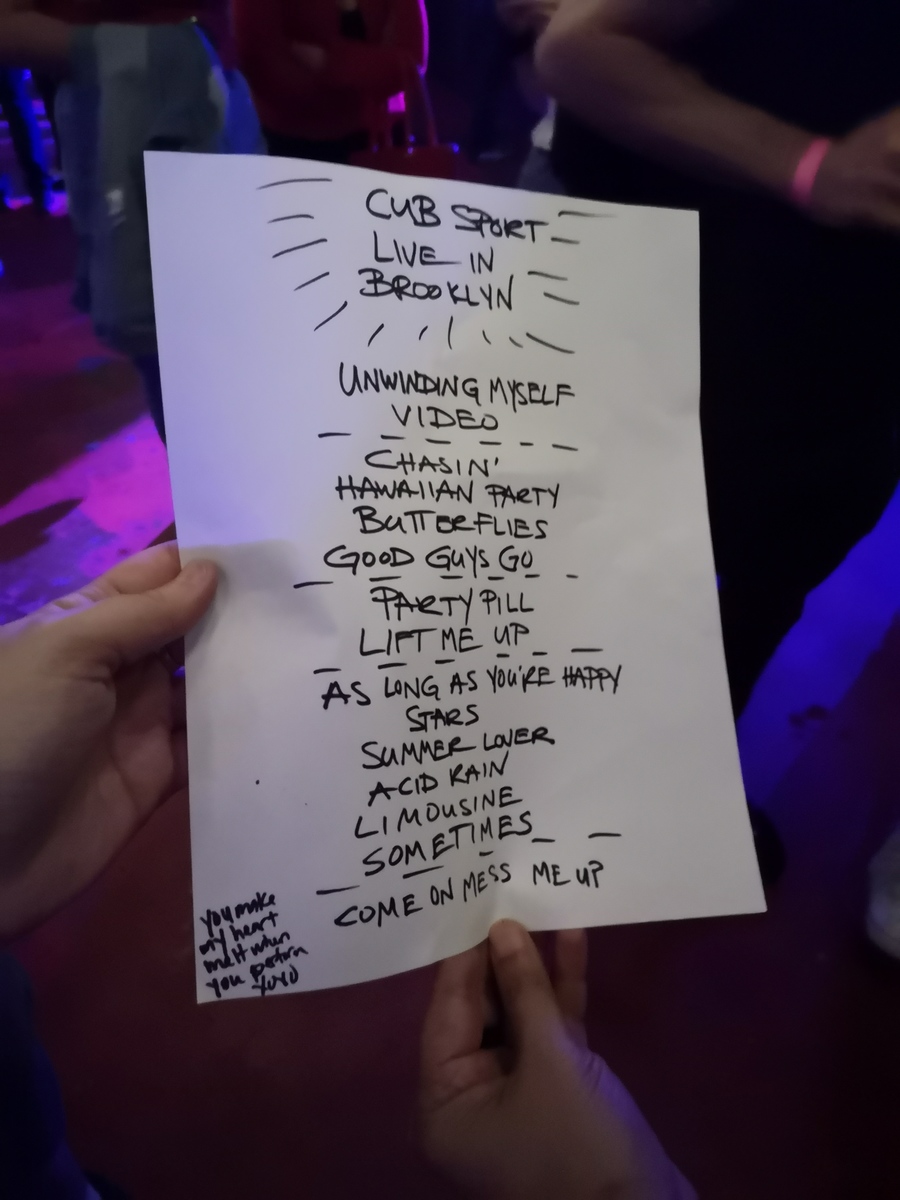 CUB SPORT
LIVE IN
BROOKLYN
UNWINDING MYSELF
VIDEO
CHASIN'
HAWAIIAN PARTY
BUTTERFLIES
GOOD GUYS GO
PARTY PILL
LIFT ME UP
AS LONG AS YOU'RE HAPPY
STARS
SUMMER LOVER
ACID RAIN
LIMOUSINE
SOMETIMES
COME ON MESS ME UP
you make
my heart
melt when
you perform
xoxo